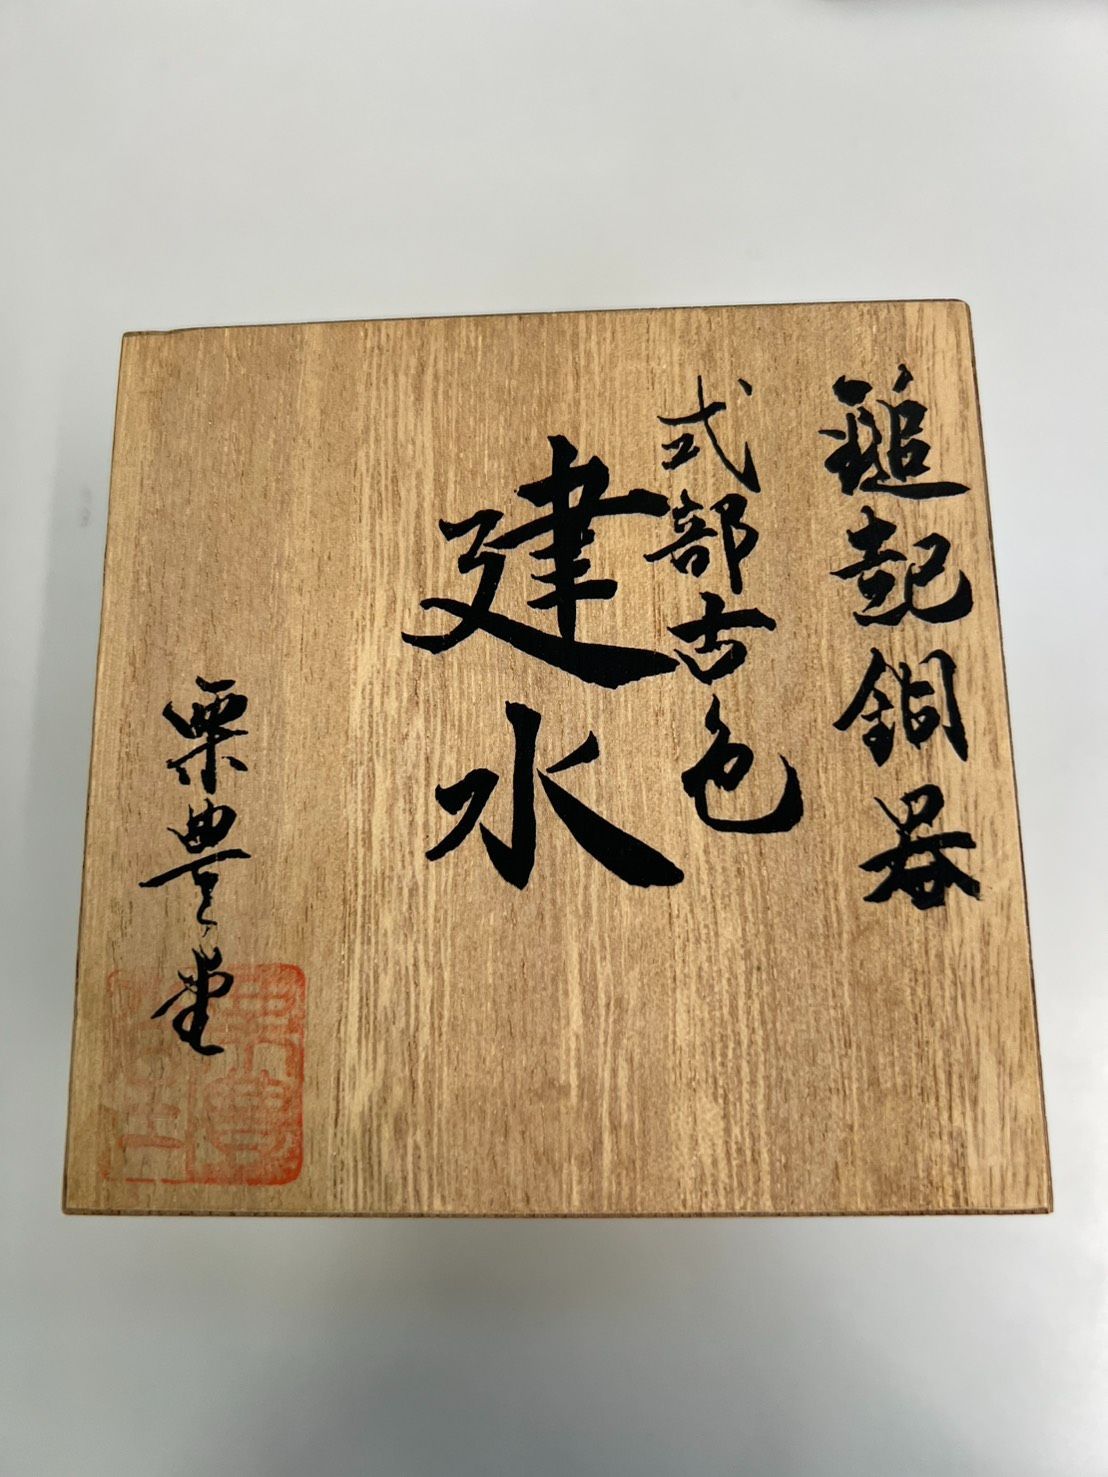 鎚起銅器
式部古色
建水
栗豊堂